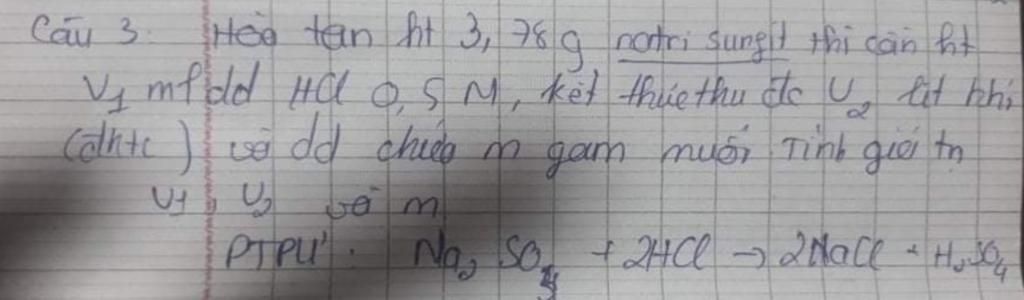 Câu 3. Hòa tan ht 3,78 g natri sungit thì cần ht
V₁ ml dd HCl 0,5 M, kết thúc thu đc V₂ lít khí
(đktc) và dd chứa m gam muối. Tính giá trị
V₁, V₂ và m
PTPƯ: Na₂SO₃ + 2HCl → 2NaCl + H₂SO₄